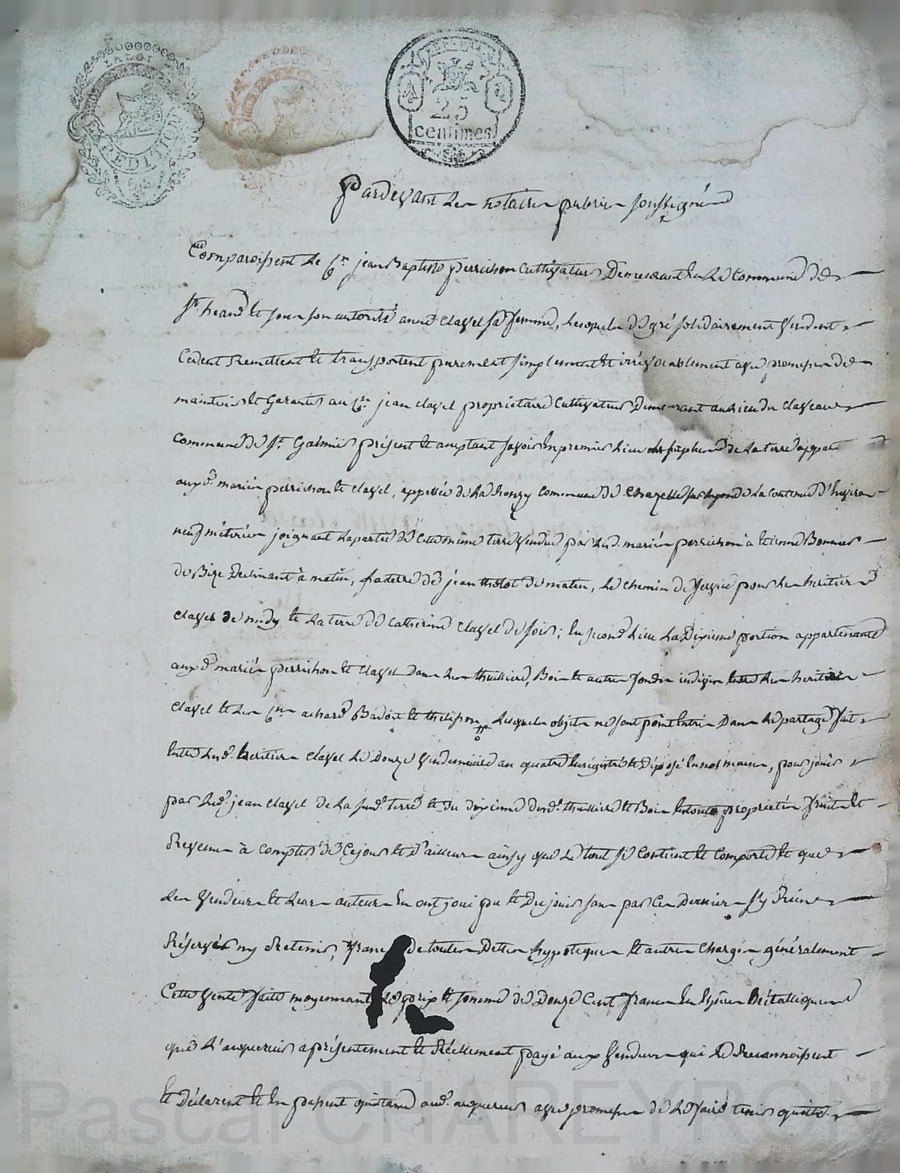 LA LOI
EXPEDITION
25
centimes
Pardevant les notaires publics soussignés
Comparoissent le Cn. jean Baptiste perrichon cultivateur Demeurant en la Commune de
St. heand et sous son autorité anne Clavel sa femme, lesquels de gré solidairement vendent
Cedent Remettent et transportent purement simplement et irrévocablement avec promesse de
maintenir et Garantir au Cn. jean clavel propriétaire Cultivateur Demeurant au lieu du claveau
commune de St. Galmier présent et acceptant savoir en premier lieu de la terre appart
aux d. mariés perrichon et clavel, appellée de la ronzy commune de Chazelle de la contenue d'Environ
neuf métérées joignant la partie de cette même terre vendue par les d. mariés perrichon à Etienne Bonnier
de matin, la terre de jean de matin, le chemin de pour les heritiers
clavel de midy et la terre de catherine clavel de soir; En second lieu la Dixieme portion appartenante
aux d. mariés perrichon et clavel dans les thuilliere, Bois et autres fonds indivis entre les heritiers
clavel et les Cns. achard Badoit et thelisson, lesquels objets ne sont point entrés Dans le partage fait
Entre les d. heritiers clavel le Douze vendemiaire an quatre Enregistré et déposé En nos mains, pour jouir
par led. jean clavel de la sus d. terre et du dixieme desd. thuilliere et Bois En toute propriété fruits et
Revenus à compter de Ce jour et d'ailleurs ainsy que le tout se Contient et Comporte et que
les vendeurs et leurs auteurs En ont joui pu et Du jouir sans par Ces Derniers s'y Rien
Réserver ny Retenir, franc de toutes Dettes hypoteques et autres charges généralement
Cette vente faite moyennant le prix et somme de Douze Cent francs En Espèces Métalliques
que l'acquereur a présentement et Réellement payé aux vendeurs qui le Reconnoissent
et déclarent et En passent quittance aud. acquereur avec promesse de le faire tenir quitte
Pascal CHAREYRON